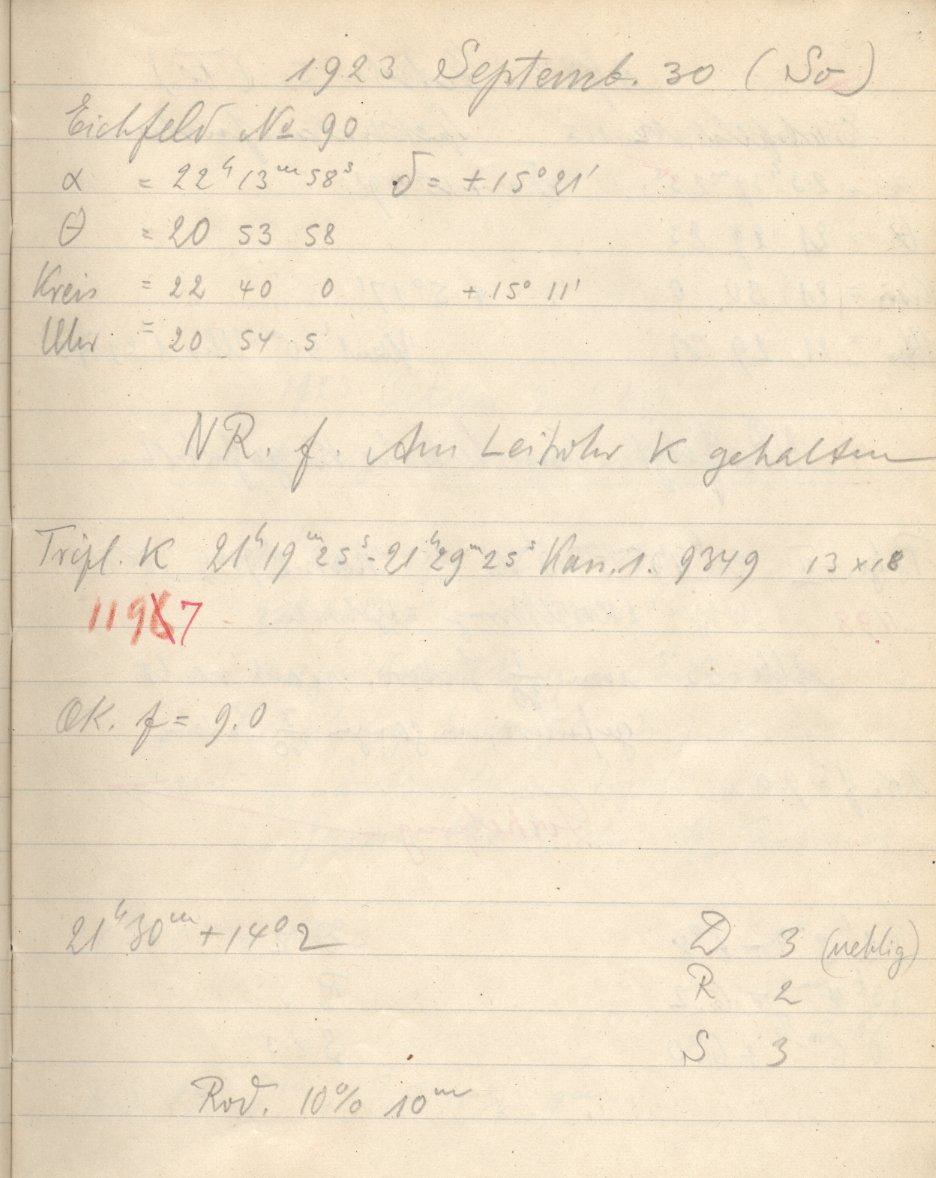 1923 Septemb. 30 (So)
Eichfeld No 90
α = 22ʰ 13ᵐ 58ˢ δ = +15° 21'
θ = 20 53 58
Kreis = 22 40 0 +15° 11'
Uhr = 20 54 5
NR. f. Am Leitrohr K gehalten
Tripl. K 21ʰ19ᵐ25ˢ - 21ʰ29ᵐ25ˢ 1. 9349 13 x 18
1196 7
OK. f = 9.0
21ʰ30ᵐ +14°2
D 3 (neblig)
R 2
S 3
Rod. 10% 10ᵐ